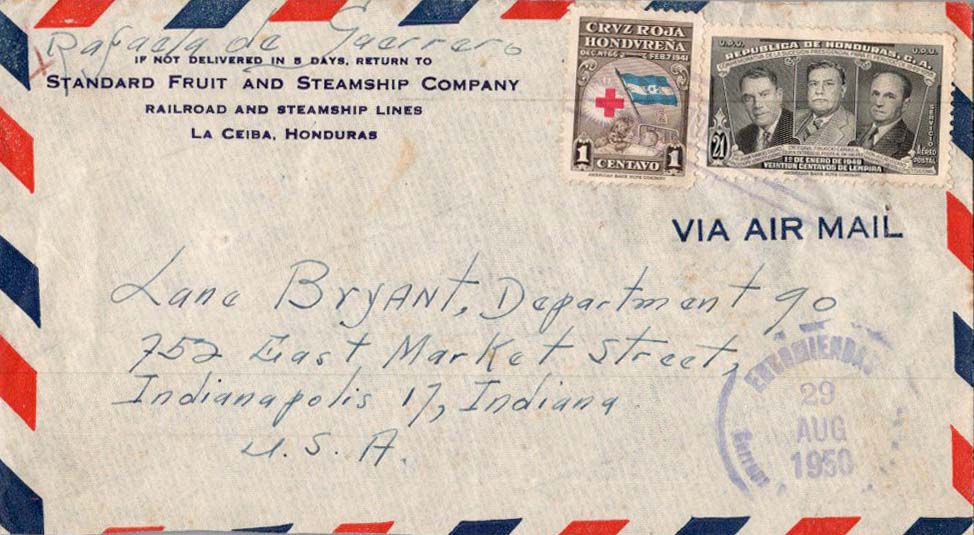 Rafaela de Guerrero
IF NOT DELIVERED IN 5 DAYS, RETURN TO
STANDARD FRUIT AND STEAMSHIP COMPANY
RAILROAD AND STEAMSHIP LINES
LA CEIBA, HONDURAS
CRVZ ROJA
HONDVREÑA
1 CENTAVO 1
AMERICAN BANK NOTE COMPANY
U.P.U. U.P.U.
REPUBLICA DE HONDURAS, C.A.
SERVICIO
AEREO
POSTAL
21
1º DE ENERO DE 1949
VEINTIUN CENTAVOS DE LEMPIRA
AMERICAN BANK NOTE COMPANY
VIA AIR MAIL
Lane BRYANT, Department 90
752 East Market Street,
Indianapolis 17, Indiana
U. S. A.
ENCOMIENDAS
29
AUG
1950